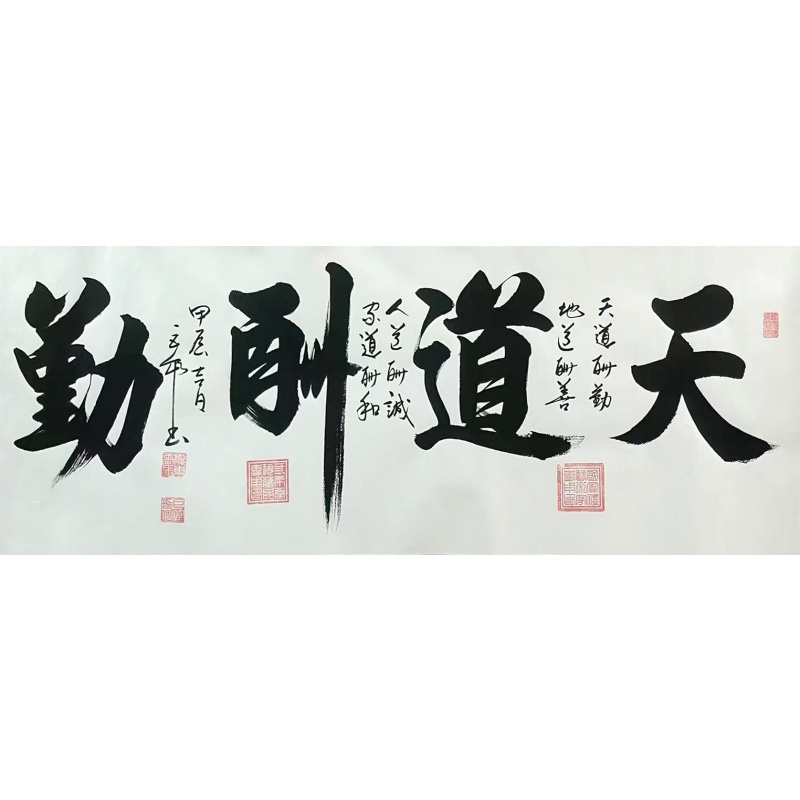 天道酬勤
天道酬勤
地道酬善
人道酬誠
家道酬和
甲辰
书